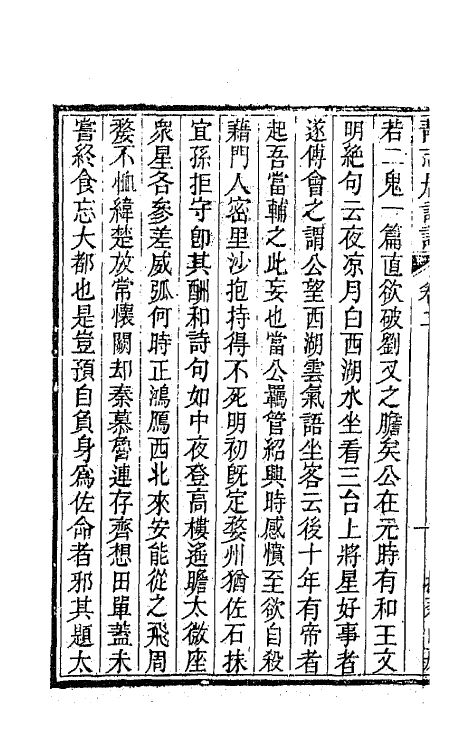 靜志居詩話 卷二
若二鬼一篇直欲破劉叉之膽矣公在元時有和王文
明絶句云夜凉月白西湖水坐看三台上將星好事者
遂傅會之謂公望西湖雲氣語坐客云後十年有帝者
起吾當輔之此妄也當公羈管紹興時感憤至欲自殺
藉門人密里沙抱持得不死明初旣定婺州猶佐石抹
宜孫拒守卽其酬和詩句如中夜登高樓遙瞻太微座
衆星各參差威弧何時正鴻鴈西北來安能從之飛周
嫠不恤緯楚放常懷關却秦慕魯連存齊想田單蓋未
嘗終食忘大都也是豈預自負身爲佐命者邪其題太